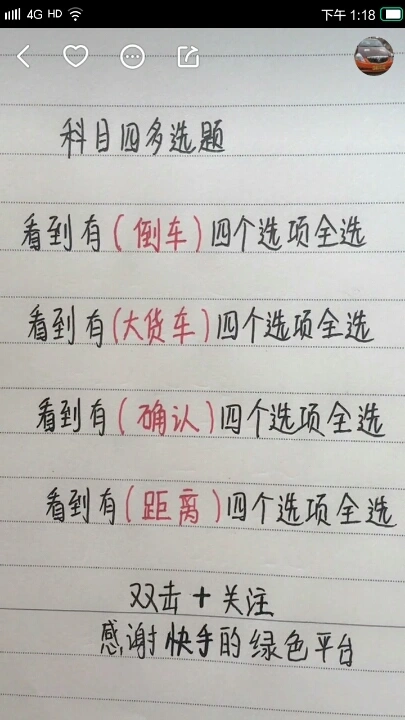 4G HD 下午 1:18
科目四多选题
看到有(倒车)四个选项全选
看到有(大货车)四个选项全选
看到有(确认)四个选项全选
看到有(距离)四个选项全选
双击+关注
感谢快手的绿色平台